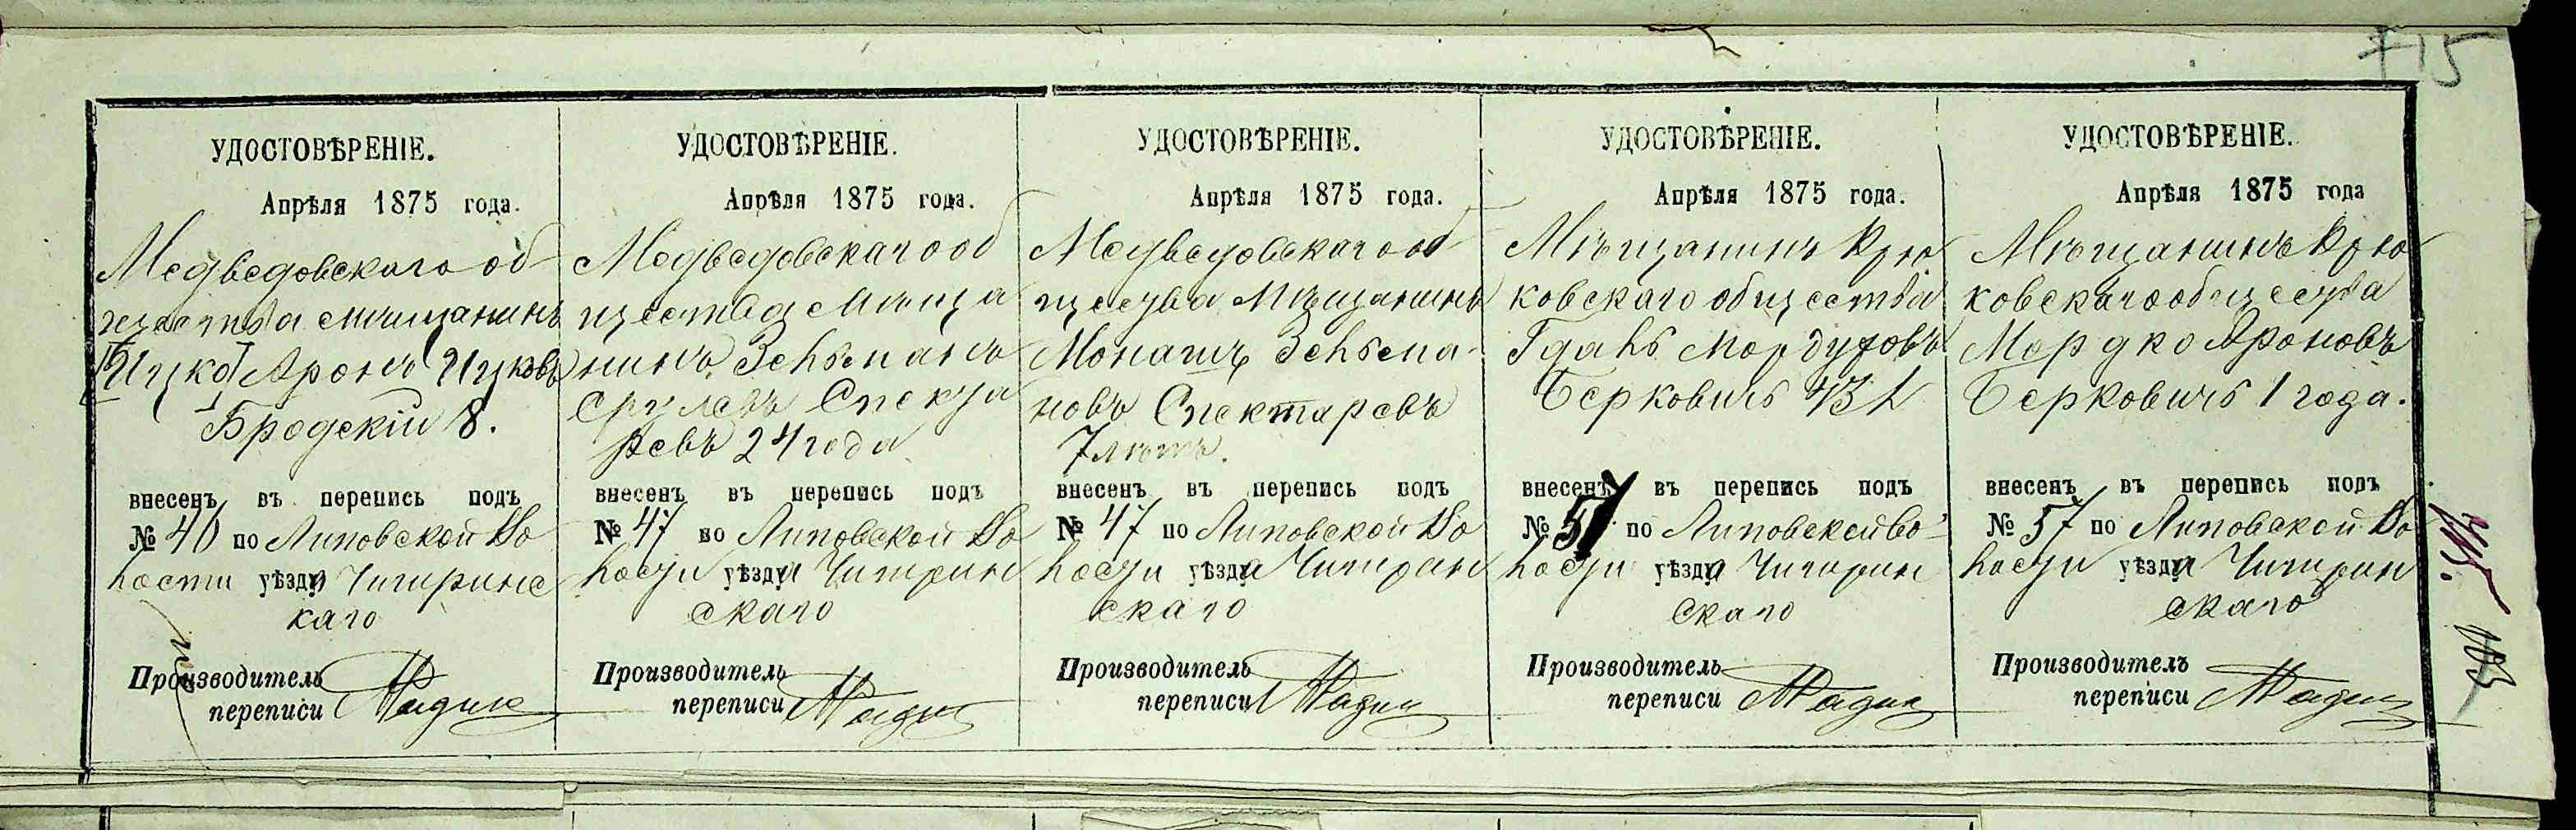 715
УДОСТОВѢРЕНІЕ.
Апрѣля 1875 года.
Медведовскаго об
щества мѣщанинъ
[Ицко] Аронъ Ицковъ
Бродскій 8.
внесенъ въ перепись подъ
№ 46 по Липовской Во
лости уѣзда Чигиринс
каго
Производитель
переписи
УДОСТОВѢРЕНІЕ.
Апрѣля 1875 года.
Медведовскаго об
щества мѣща
нинъ Зельманъ
Срулевъ Спекта
ревъ 24 года
внесенъ въ перепись подъ
№ 47 по Липовской Во
лости уѣзда Чигирин
скаго
Производитель
переписи
УДОСТОВѢРЕНІЕ.
Апрѣля 1875 года.
Медведовскаго об
щества мѣщанинъ
Монашъ Зельма-
новъ Спектаревъ
7 лѣтъ.
внесенъ въ перепись подъ
№ 47 по Липовской Во
лости уѣзда Чигирин
скаго
Производитель
переписи
УДОСТОВѢРЕНІЕ.
Апрѣля 1875 года.
Мѣщанинъ Крю
ковскаго общества
Гдаль Мордуховъ
Берковичъ
внесенъ въ перепись подъ
№ 57 по Липовской Во-
лости уѣзда Чигирин
скаго
Производитель
переписи
УДОСТОВѢРЕНІЕ.
Апрѣля 1875 года
Мѣщанинъ Крю
ковскаго общества
Мордко Ароновъ
Берковичъ 1 года.
внесенъ въ перепись подъ
№ 57 по Липовской Во
лости уѣзда Чигирин
скаго
Производитель
переписи